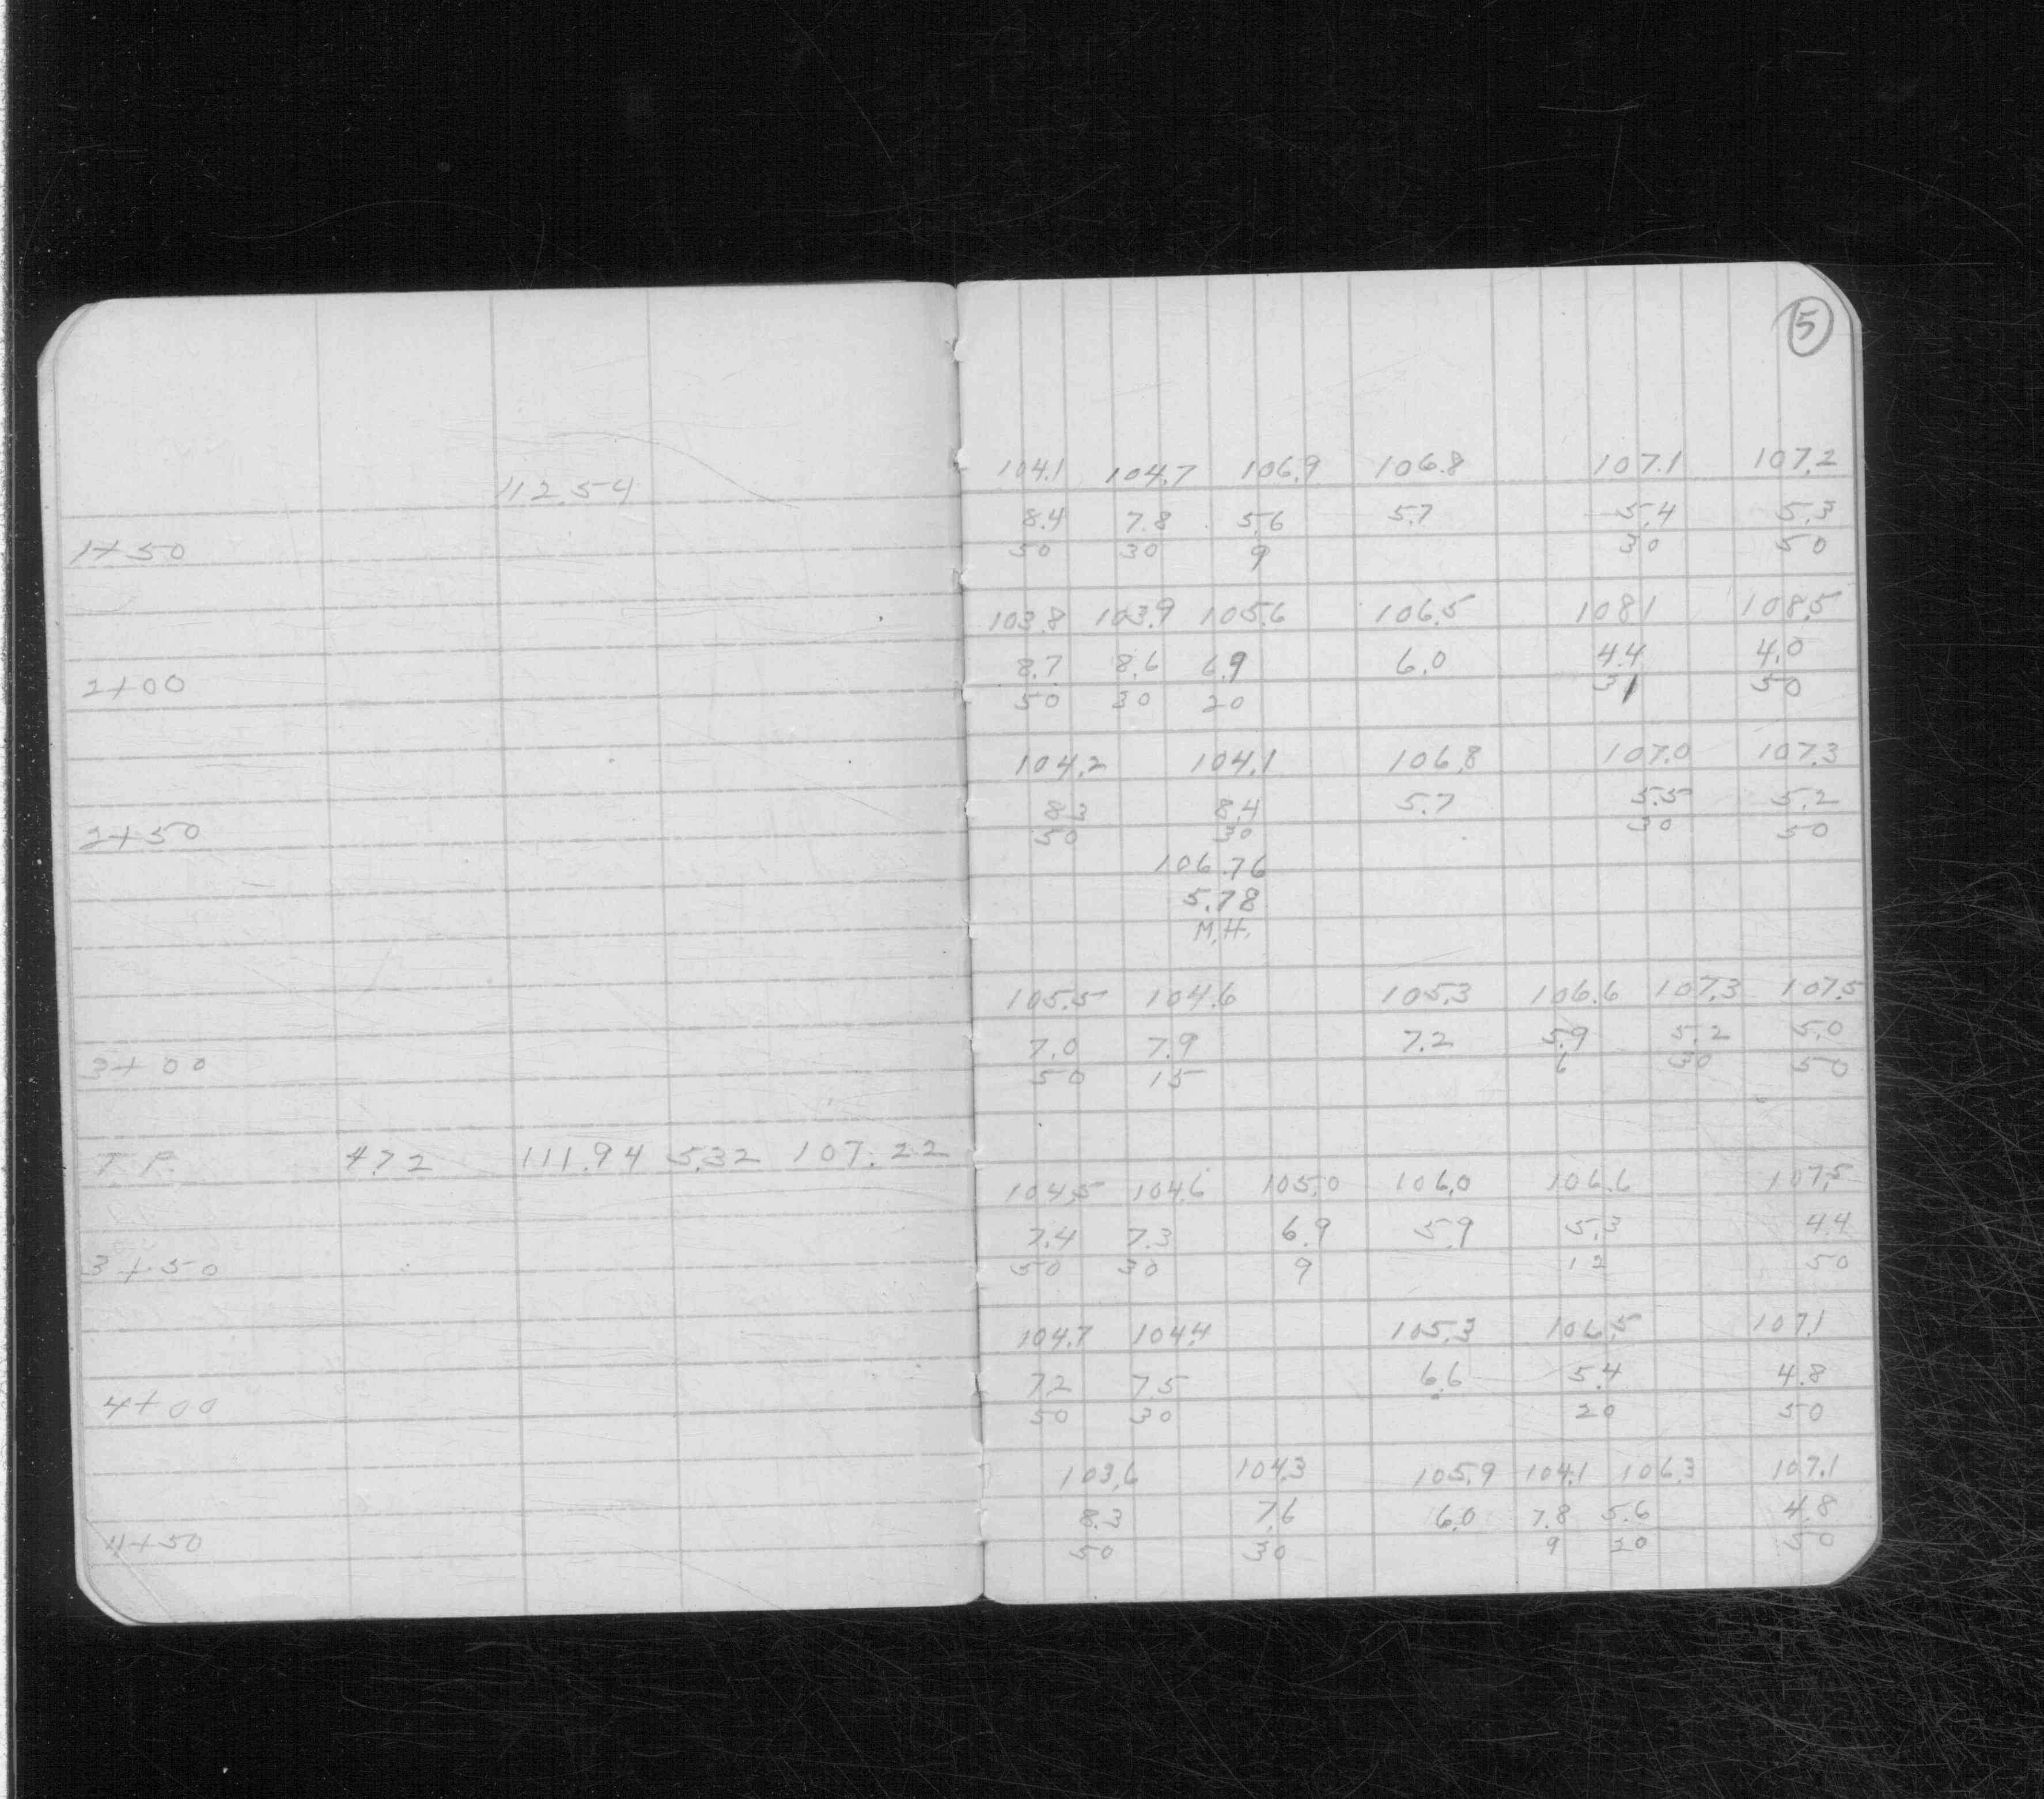 5
112.54
104.1 104.7 106.9 106.8 107.1 107.2
8.4 7.8 5.6 5.7 5.4 5.3
1+50 50 30 9 30 50
103.8 103.9 105.6 106.5 108.1 108.5
8.7 8.6 6.9 6.0 4.4 4.0
2+00 50 30 20 31 50
104.2 104.1 106.8 107.0 107.3
8.3 8.4 5.7 5.5 5.2
2+50 50 30 30 50
106.76
5.78
M.H.
105.5 104.6 105.3 106.6 107.3 107.5
7.0 7.9 7.2 5.9 5.2 5.0
3+00 50 15 6 30 50
T.P. 4.72 111.94 5.32 107.22
104.5 104.6 105.0 106.0 106.6 107.5
7.4 7.3 6.9 5.9 5.3 4.4
3+50 50 30 9 12 50
104.7 104.4 105.3 106.5 107.1
7.2 7.5 6.6 5.4 4.8
4+00 50 30 20 50
103.6 104.3 105.9 104.1 106.3 107.1
8.3 7.6 6.0 7.8 5.6 4.8
4+50 50 30 9 20 50